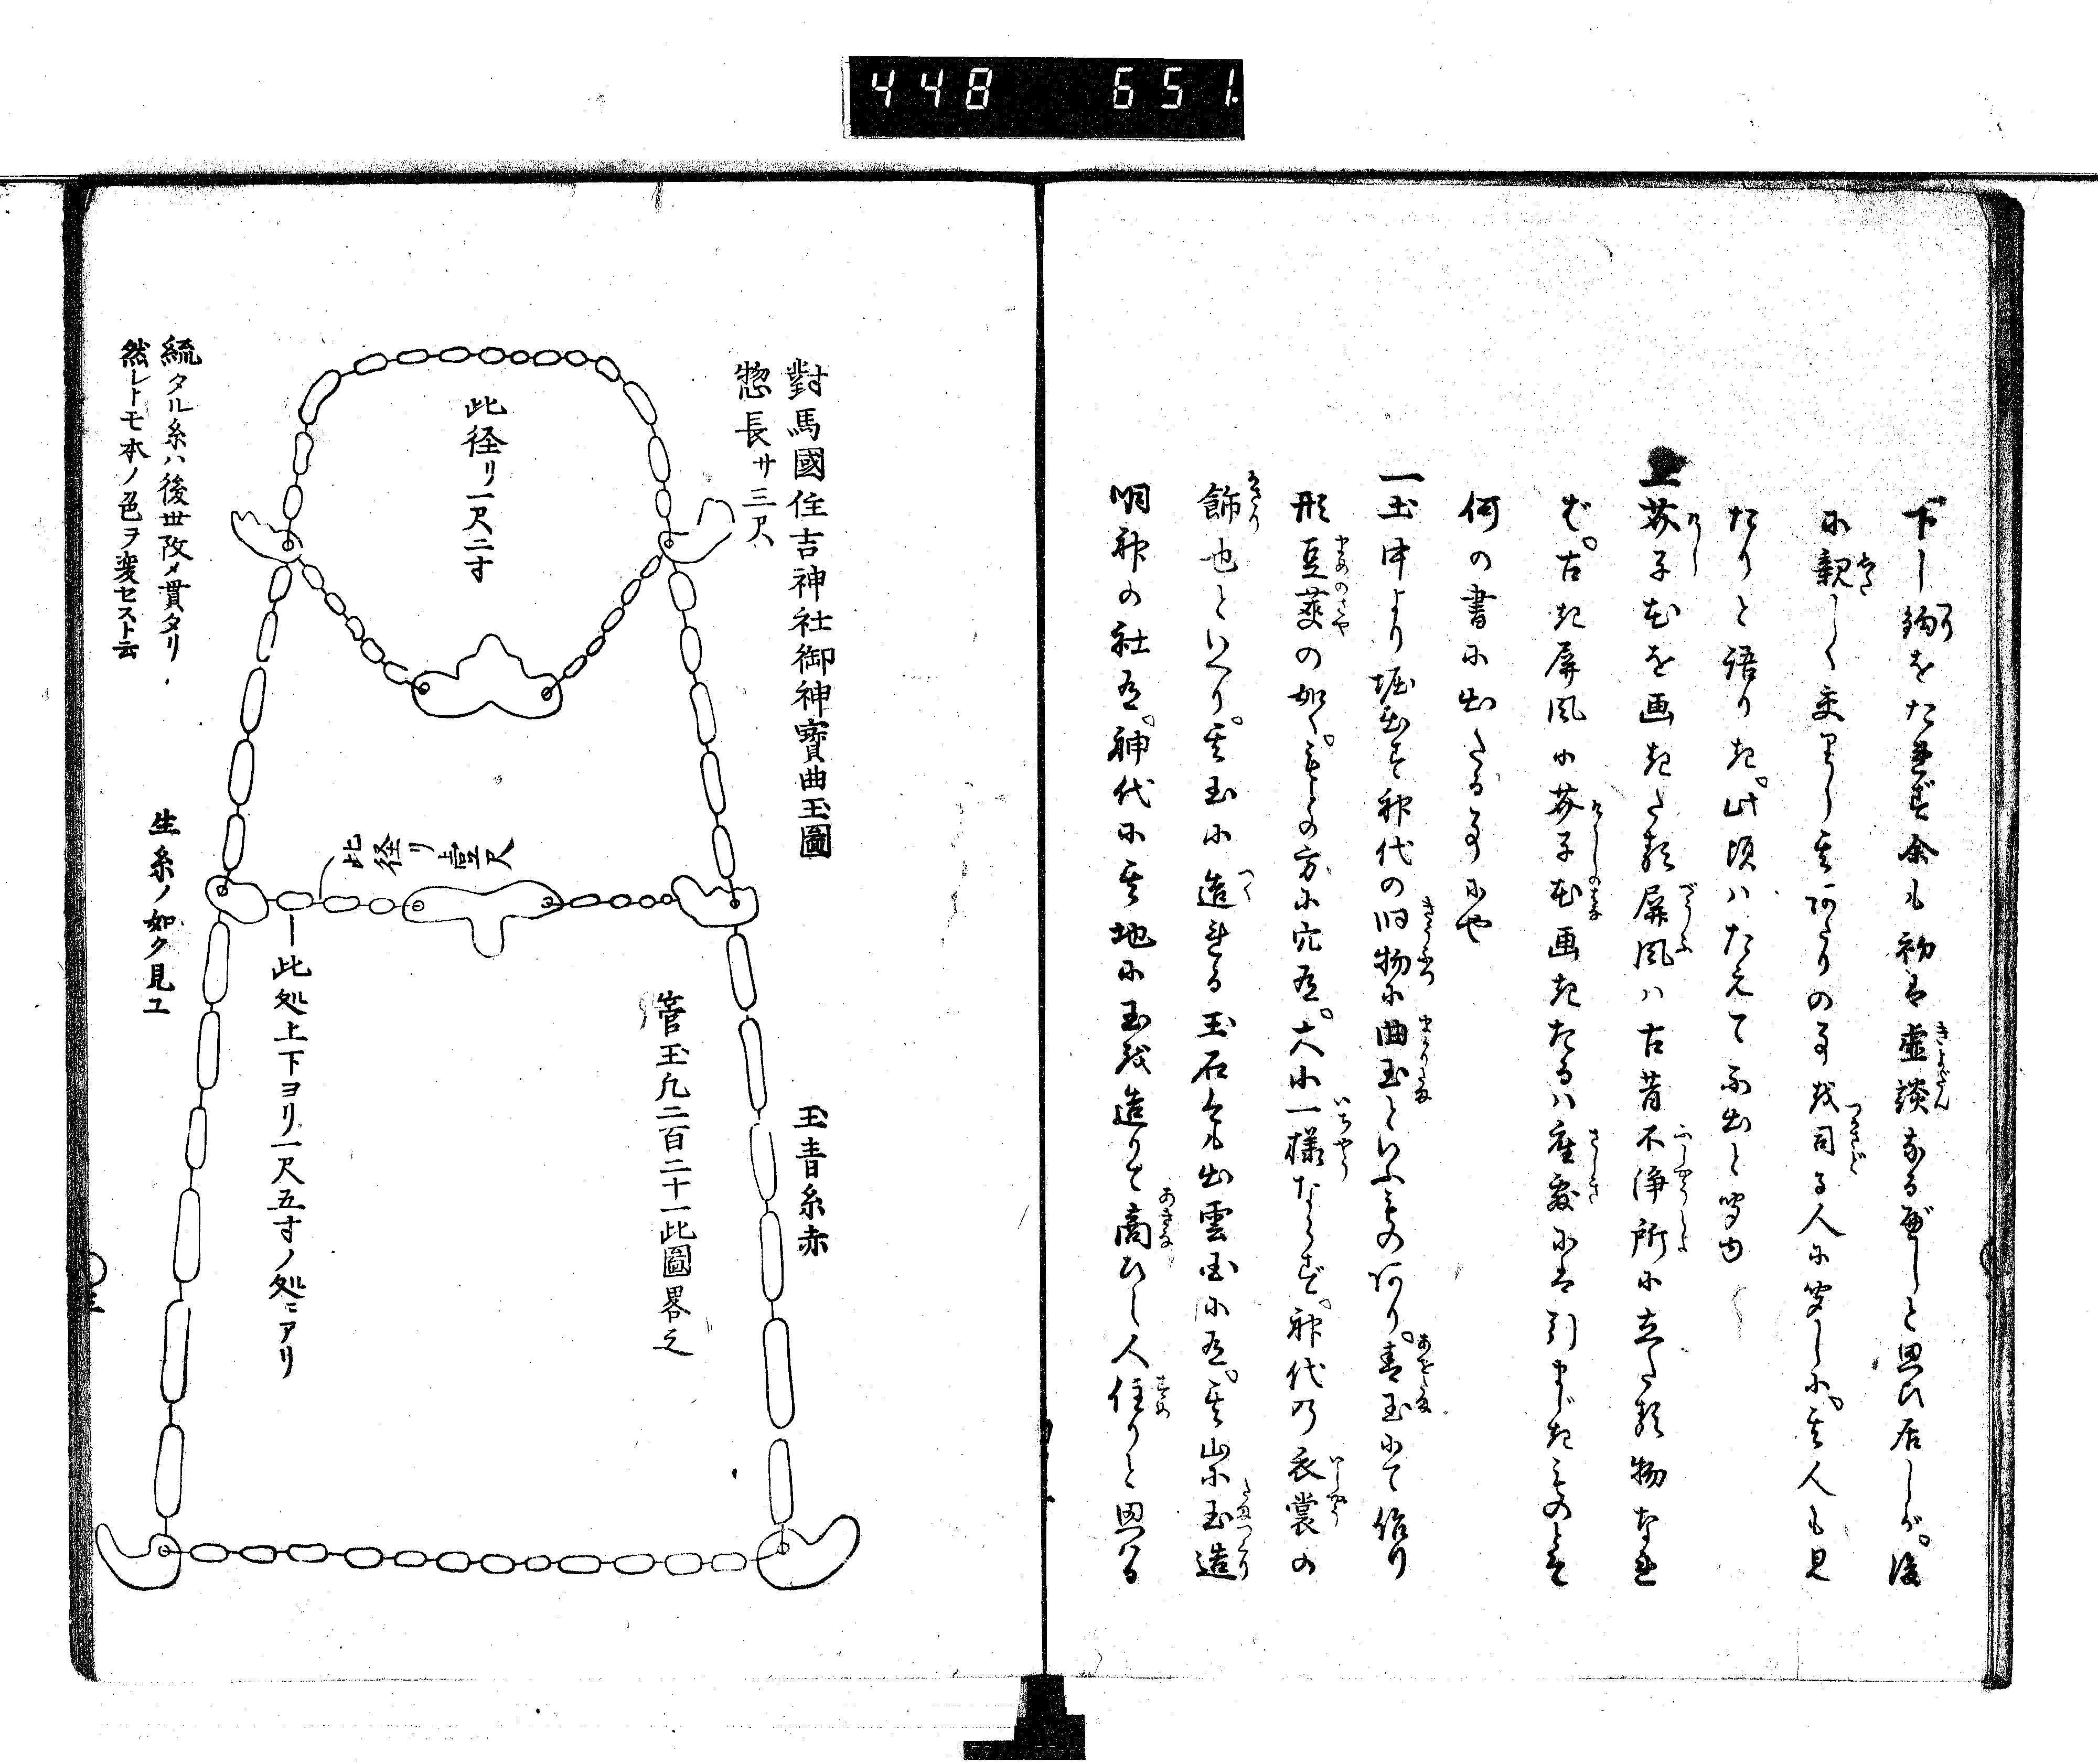 448 651
下し鈎をたれず余も初は虚談なるべしと思ひ居しが。後
に親しく交りし其所の事を司る人に
たりと語りき。此頃はたえて不出と
一芥子花を画きたる屏風ハ古昔不浄所に立たる物なれ
ば。古き屏風に芥子花画きたるハ座敷には引まじきものとぞ
何の書に出たる事にや
一土中より堀出す神代の旧物に曲玉といふものあり。青玉にて作り
形豆莢の如く。もとの方に穴有。大小一様ならず。神代の衣裳の
飾也といへり。其玉に造れる玉石今も出雲国に有。其山に玉造
明神の社有。神代に其地に玉を造りて商ひし人住りと思へる
對馬國住吉神社御神寶曲玉圖
惣長サ三尺
此径リ一尺二寸
玉青糸赤
管玉凡二百二十一此圖畧之
此径リ壹尺
此処上下ヨリ一尺五寸ノ処ニアリ
統タル糸ハ後世改メ貫タリ
然レトモ本ノ色ヲ変セスト云
生糸ノ如ク見ユ